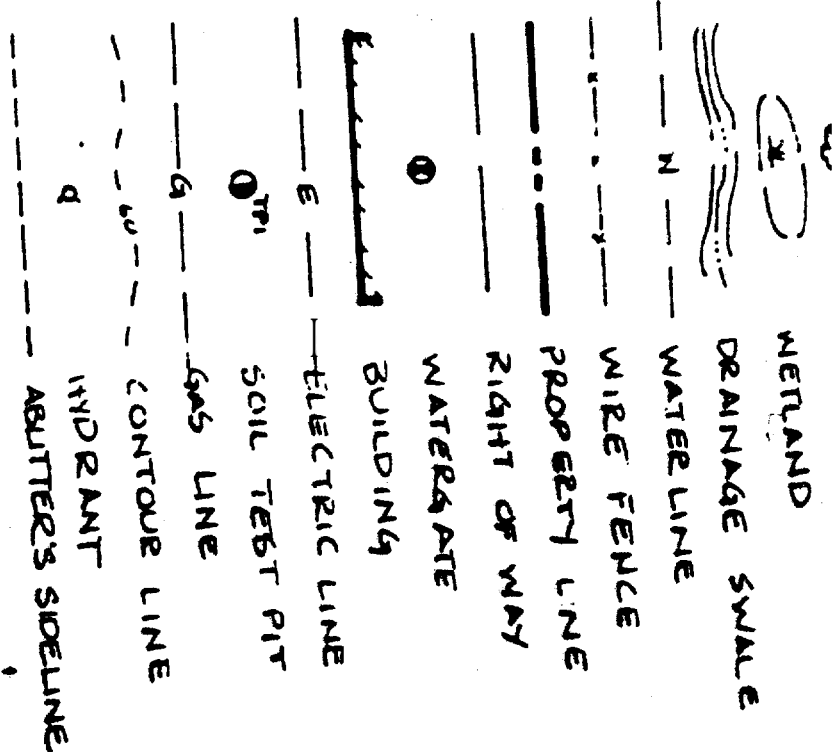 WETLAND
DRAINAGE SWALE
W WATER LINE
x x WIRE FENCE
PROPERTY LINE
RIGHT OF WAY
WATERGATE
BUILDING
E ELECTRIC LINE
TP1 SOIL TEST PIT
G GAS LINE
CONTOUR LINE
HYDRANT
ABUTTER'S SIDELINE